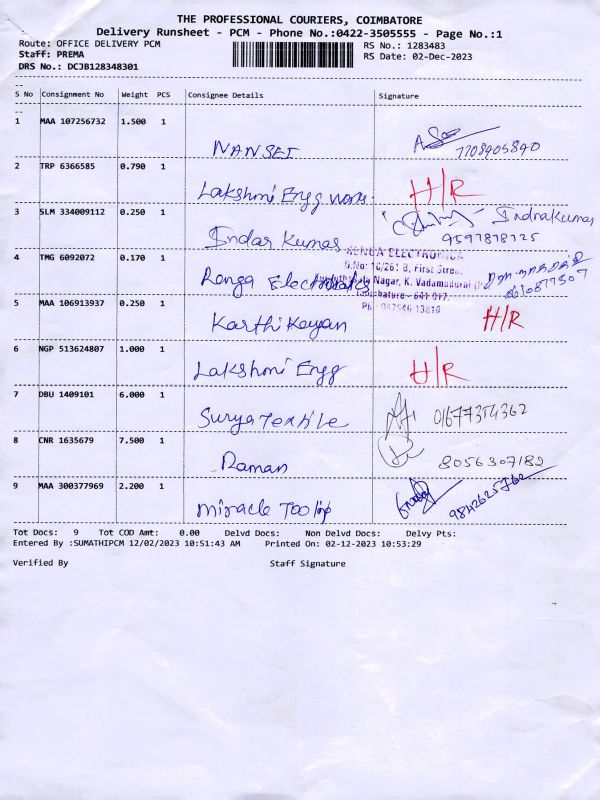 THE PROFESSIONAL COURIERS, COIMBATORE
Delivery Runsheet - PCM - Phone No.:0422-3505555 - Page No.:1
Route: OFFICE DELIVERY PCM RS No.: 1283483
Staff: PREMA RS Date: 02-Dec-2023
DRS No.: DCJB128348301
S No Consignment No Weight PCS Consignee Details Signature
1 MAA 107256732 1.500 1
NANSEI 7708405840
2 TRP 6366585 0.790 1
Lakshmi Engg works H/R
3 SLM 334009112 0.250 1
Indrakumar
Indar Kumar 9597878725
4 TMG 6092072 0.170 1
RENGA ELECTRONICA
D.No: 10/261 B, First Street,
Renga Electronics
Nagar, K. Vadamadurai
Coimbatore - 641 017.
5 MAA 106913937 0.250 1
Karthi Keyan H/R
6 NGP 513624807 1.000 1
Lakshmi Engg H/R
7 DBU 1409101 6.000 1
Surya Textile 01677354362
8 CNR 1635679 7.500 1
Raman 8056307182
9 MAA 300377969 2.200 1
miracle Tooling 9842625762
Tot Docs: 9 Tot COD Amt: 0.00 Delvd Docs: Non Delvd Docs: Delvy Pts:
Entered By :SUMATHIPCM 12/02/2023 10:51:43 AM Printed On: 02-12-2023 10:53:29
Verified By Staff Signature